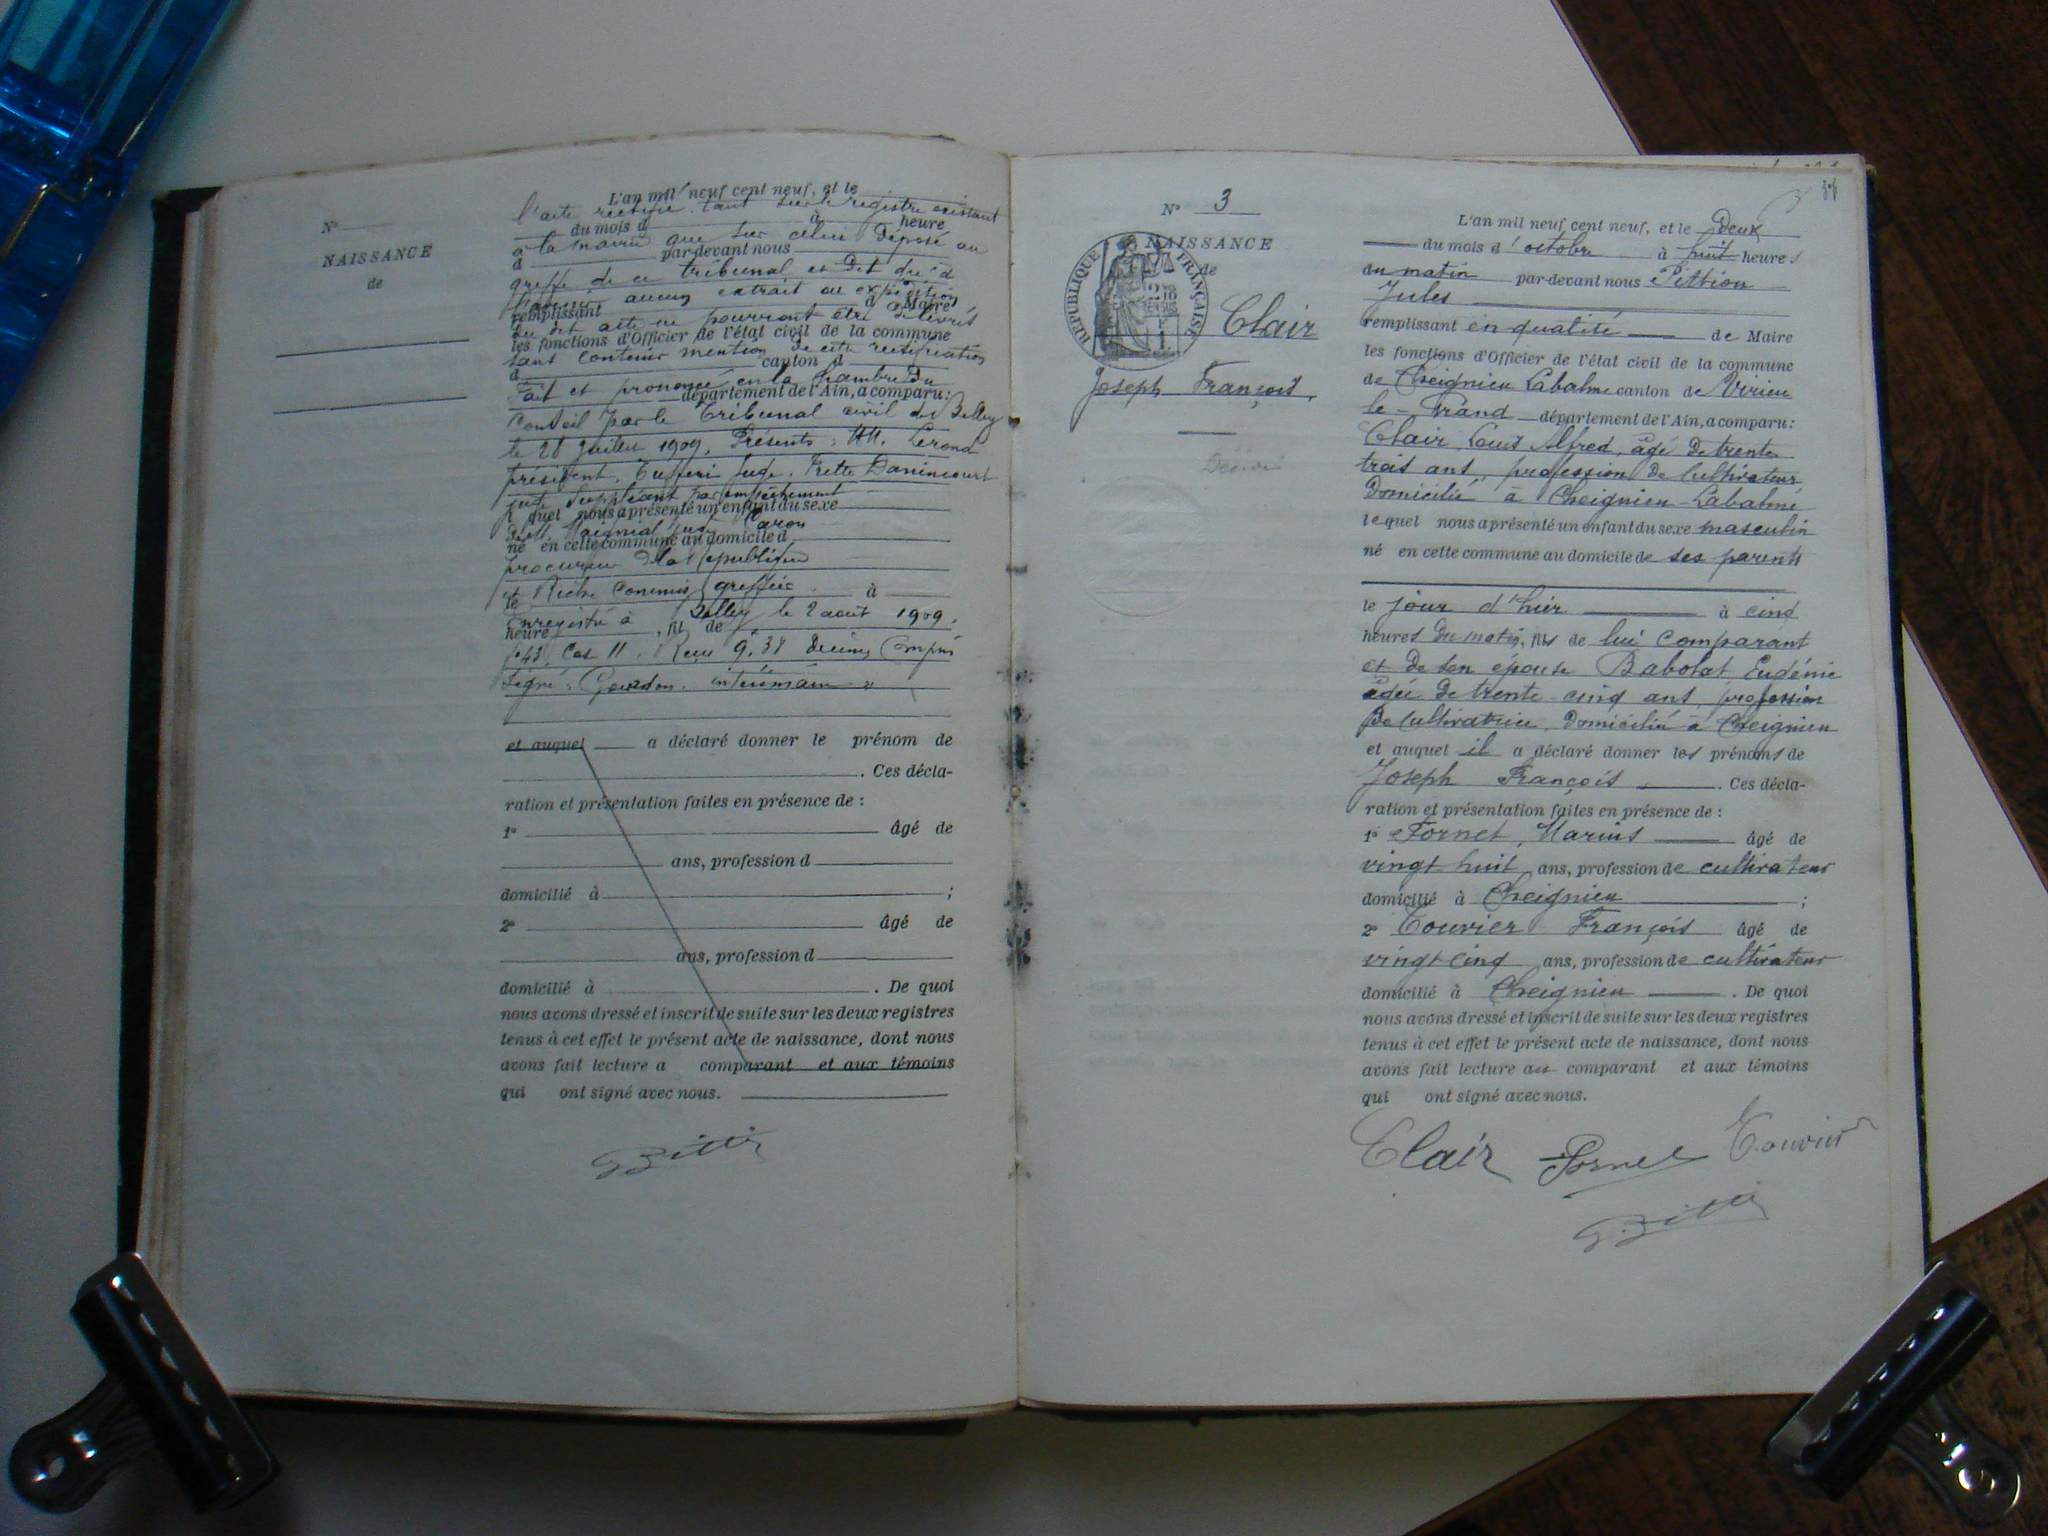 N°
NAISSANCE
de
L'an mil neuf cent neuf, et le
l'acte rectifié tant sur le registre existant
du mois d à heure
à la mairie que sur celui déposé au
d par-devant nous
greffe de ce tribunal et dit qu'à
aucun extrait ou expédition
remplissant d Maire
du dit acte ne pourront être délivrés
les fonctions d'Officier de l'état civil de la commune
sans contenir mention de cette rectification
d canton d
Fait et prononcé en la chambre du
département de l'Ain, a comparu:
Conseil par le Tribunal civil de Belley
le 28 Juillet 1909. Présents: MM.
président, juge,
juge suppléant par empêchement
l quel nous a présenté un enfant du sexe
né en cette commune au domicile d
procureur de la République
et Riche Commis greffier
le à
Enregistré à Belley le 2 août 1909.
heure , fil de
f° 43, Cas 11. Reçu 9.38 Décimes Compris
Signé: intérimaire
et auquel a déclaré donner le prénom de
. Ces décla-
ration et présentation faites en présence de :
1° âgé de
ans, profession d
domicilié à ;
2° âgé de
ans, profession d
domicilié à . De quoi
nous avons dressé et inscrit de suite sur les deux registres
tenus à cet effet le présent acte de naissance, dont nous
avons fait lecture a comparant et aux témoins
qui ont signé avec nous.
N° 3
NAISSANCE
de
RÉPUBLIQUE FRANÇAISE
Clair
Joseph François.
Décédé
3
L'an mil neuf cent neuf, et le Deux
du mois d'octobre à huit heures
du matin par-devant nous Pittion
Jules
remplissant en qualité de Maire
les fonctions d'Officier de l'état civil de la commune
de Cheignieu Labalme canton de Virieu
le-Grand département de l'Ain, a comparu:
Clair Louis Alfred, âgé de trente
trois ans, profession de Cultivateur
Domicilié à Cheignieu-Labalme
lequel nous a présenté un enfant du sexe masculin
né en cette commune au domicile de ses parents
le jour d'hier à cinq
heures du matin, fils de lui comparant
et de son épouse Babolat Eugénie
âgée de trente-cinq ans, profession
de Cultivatrice, Domiciliée à Cheignieu
et auquel il a déclaré donner les prénoms de
Joseph François . Ces décla-
ration et présentation faites en présence de :
1° Fornet, Marius âgé de
vingt huit ans, profession de cultivateur
domicilié à Cheignieu ;
2° Touvier François âgé de
vingt cinq ans, profession de cultivateur
domicilié à Cheignieu . De quoi
nous avons dressé et inscrit de suite sur les deux registres
tenus à cet effet le présent acte de naissance, dont nous
avons fait lecture au comparant et aux témoins
qui ont signé avec nous.
Clair Fornet Touvier